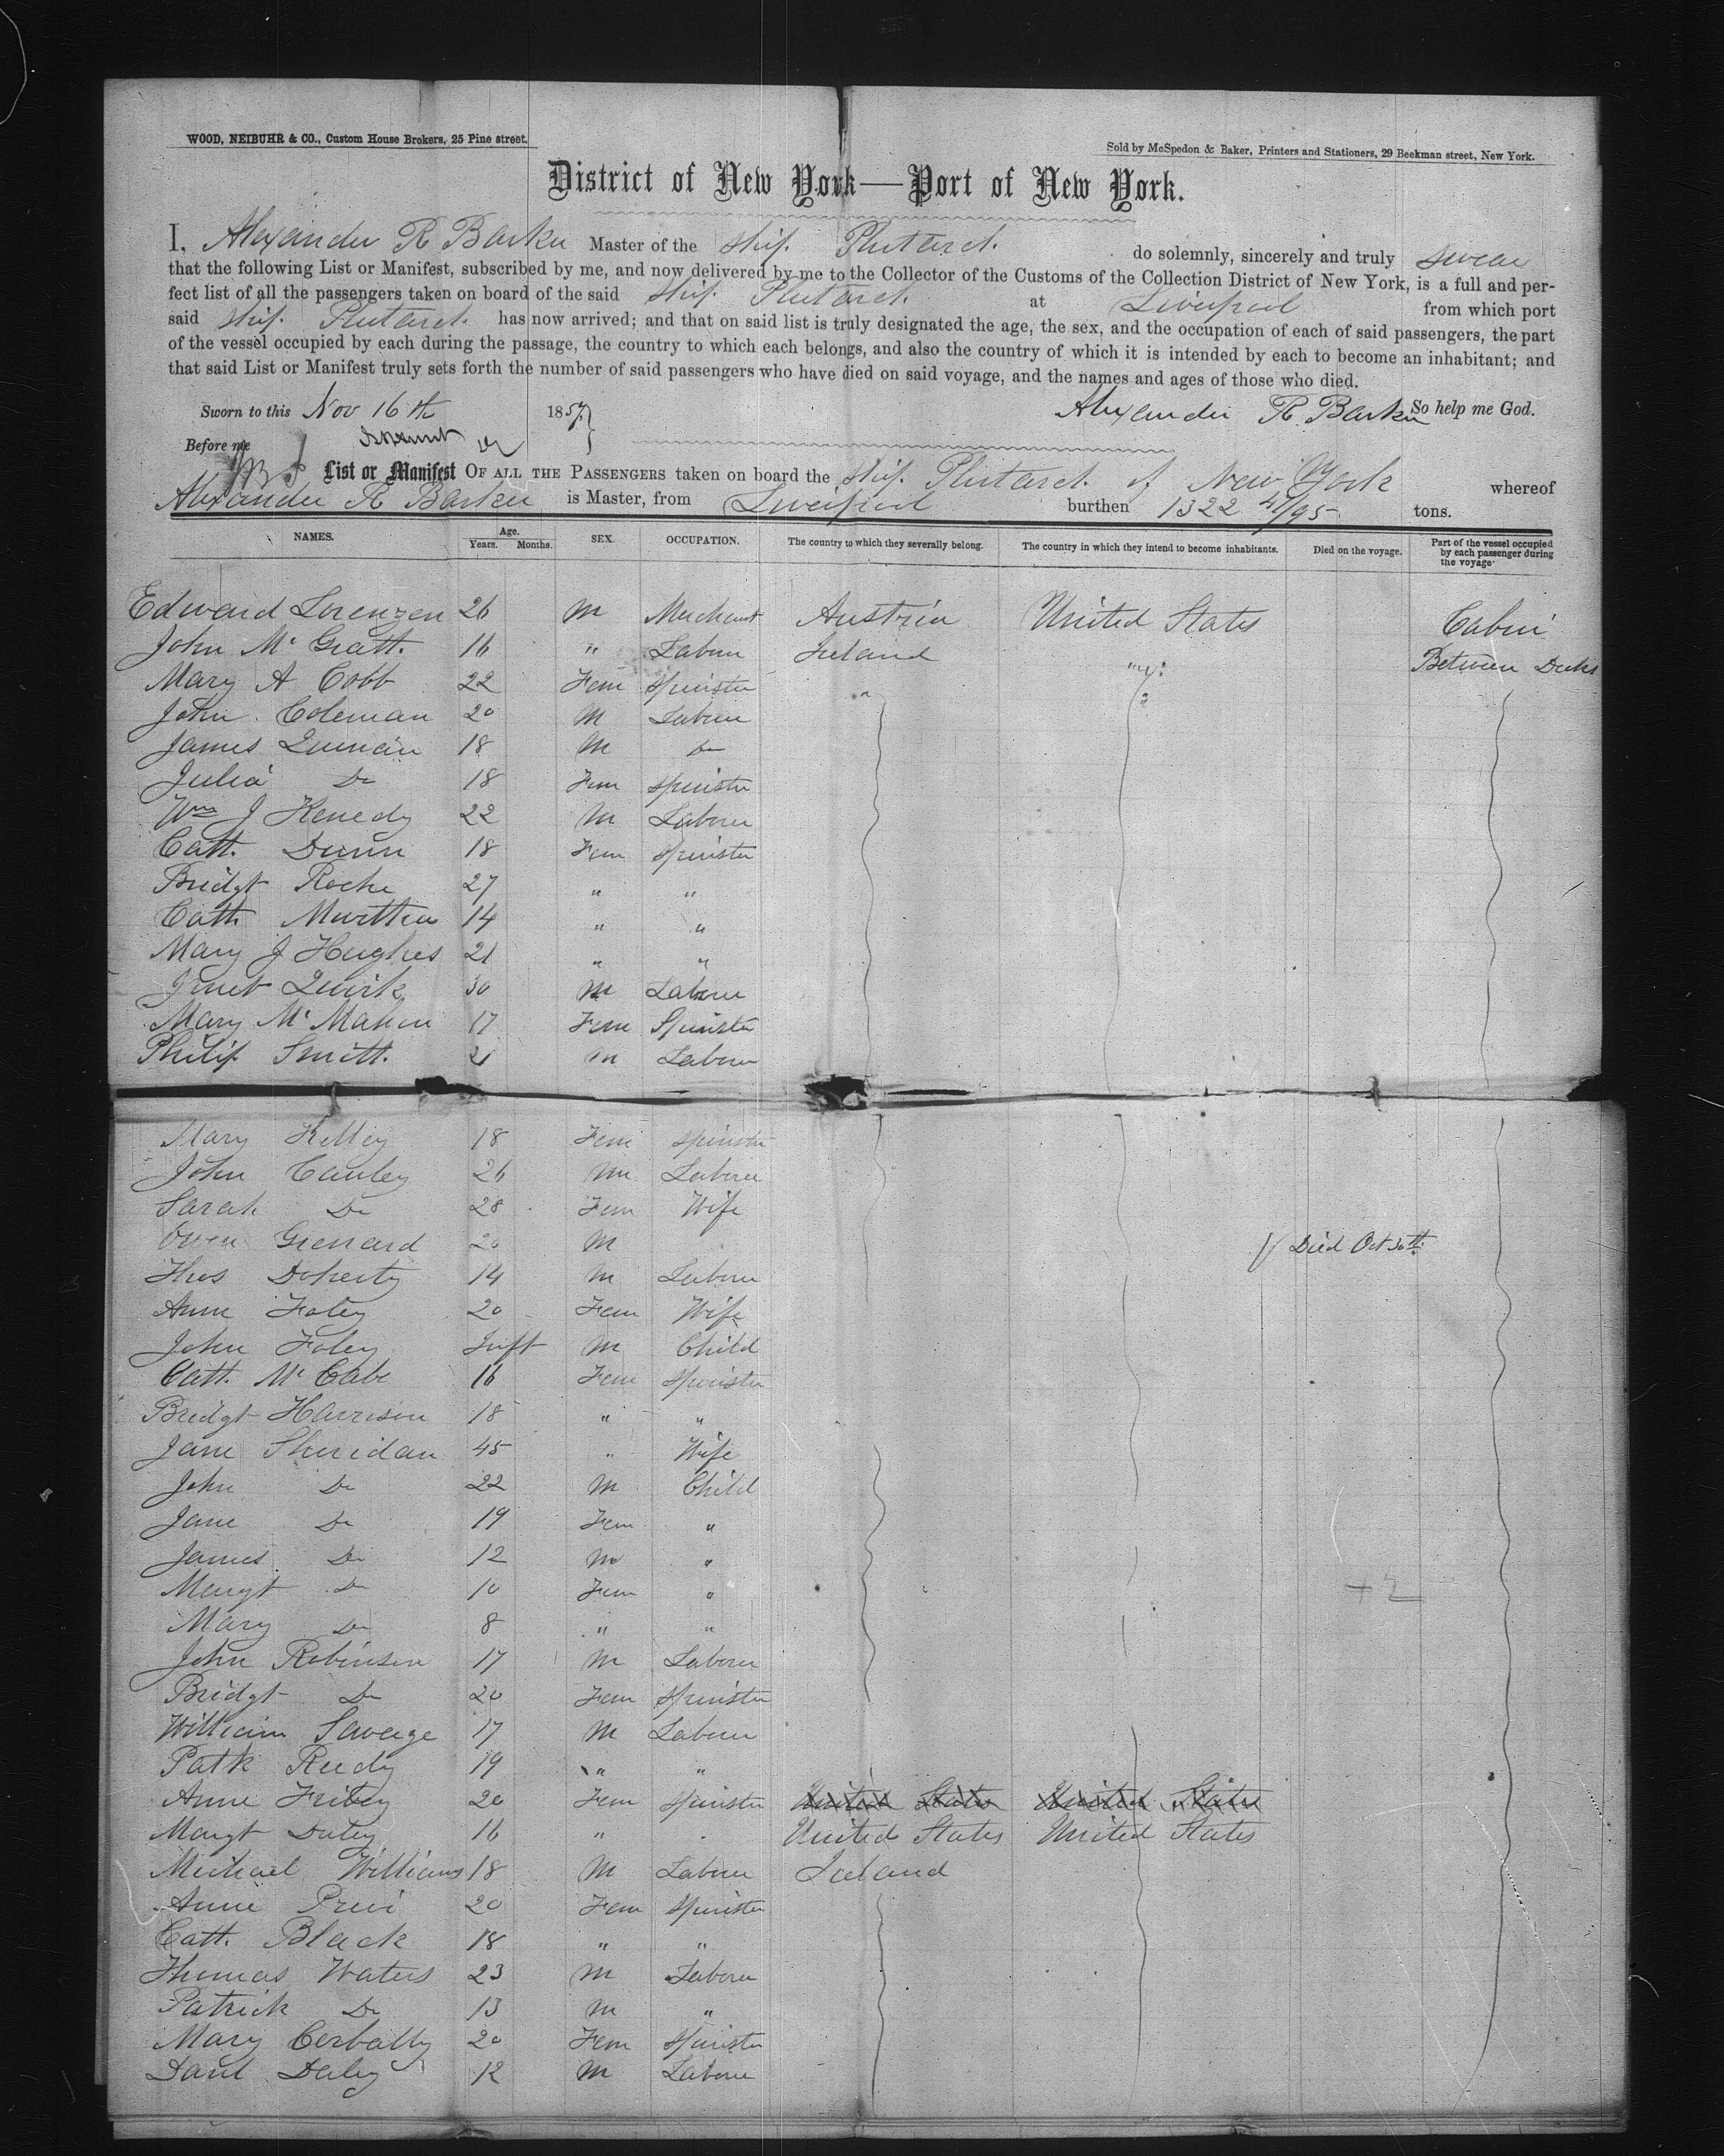 WOOD, NEIBUHR & CO., Custom House Brokers, 25 Pine street.
Sold by McSpedon & Baker, Printers and Stationers, 29 Beekman street, New York.
District of New York—Port of New York.
I, Alexander R Barker Master of the ship Plutarch do solemnly, sincerely and truly swear
that the following List or Manifest, subscribed by me, and now delivered by me to the Collector of the Customs of the Collection District of New York, is a full and per-
fect list of all the passengers taken on board of the said ship Plutarch at Liverpool from which port
said ship Plutarch has now arrived; and that on said list is truly designated the age, the sex, and the occupation of each of said passengers, the part
of the vessel occupied by each during the passage, the country to which each belongs, and also the country of which it is intended by each to become an inhabitant; and
that said List or Manifest truly sets forth the number of said passengers who have died on said voyage, and the names and ages of those who died.
Sworn to this Nov 16th 1857 Alexander R. Barker So help me God.
Before me
List or Manifest OF ALL THE PASSENGERS taken on board the ship Plutarch of New York whereof
Alexander R Barker is Master, from Liverpool burthen 1322 41/95 tons.
NAMES. Age. Years. Months. SEX. OCCUPATION. The country to which they severally belong. The country in which they intend to become inhabitants. Died on the voyage. Part of the vessel occupied by each passenger during the voyage.
Edward Lorenzen 26 M Merchant Austria United States Cabin
John Mc Grath 16 " Laborer Ireland " Between Decks
Mary A Cobb 22 Fem Spinster "
John Coleman 20 M Laborer
James 18 M Do
Julia Do 18 Fem Spinster
Wm J Kenedy 22 M Laborer
Cath Dunn 18 Fem Spinster
Bridgt Roche 27 " "
Cath 14 " "
Mary J Hughes 21 " "
Quirk 30 M Laborer
Mary Mc Mahon 17 Fem Spinster
Philip Smith 21 M Laborer
Mary Kelley 18 Fem Spinster
John Cauley 26 M Laborer
Sarah Do 28 Fem Wife
Owen 20 M Died Oct 30th
Thos Doherty 14 M Laborer
Anne Foley 20 Fem Wife
John Foley Inft M Child
Cath Mc Cabe 16 Fem Spinster
Bridgt Harrison 18 " "
Jane Sheridan 45 " Wife
John Do 22 M Child
Jane Do 19 Fem "
James Do 12 M "
Margt Do 10 Fem "
Mary Do 8 " "
John Robinson 17 M Laborer
Bridgt Do 20 Fem Spinster
William Savage 17 M Laborer
Patk 19 " "
Anne 20 Fem Spinster United States United States
Margt Daley 16 " United States United States
Michael Williams 18 M Laborer Ireland
Anne 20 Fem Spinster
Cath Black 18 " "
Thomas Waters 23 M Laborer
Patrick Do 13 M "
Mary Corbally 20 Fem Spinster
Danl Daley 12 M Laborer